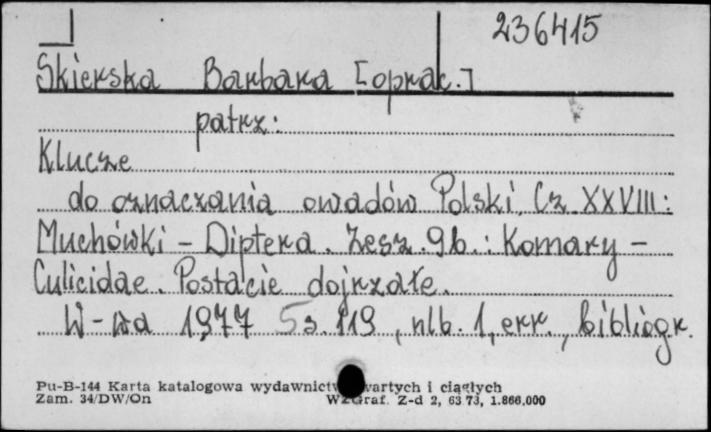 236415
Skierska Barbara [oprac.]
patrz:
Klucze
do oznaczania owadów Polski. Cz XXVIII:
Muchówki - Diptera. Zesz. 9b.: Komary -
Culicidae. Postacie dojrzałe.
W-wa 1977 s. 119, nlb. 1, err., bibliogr.
Pu-B-144 Karta katalogowa wydawnictw zwartych i ciągłych
Zam. 34/DW/On WZGraf. Z-d 2, 63 73, 1.866,000